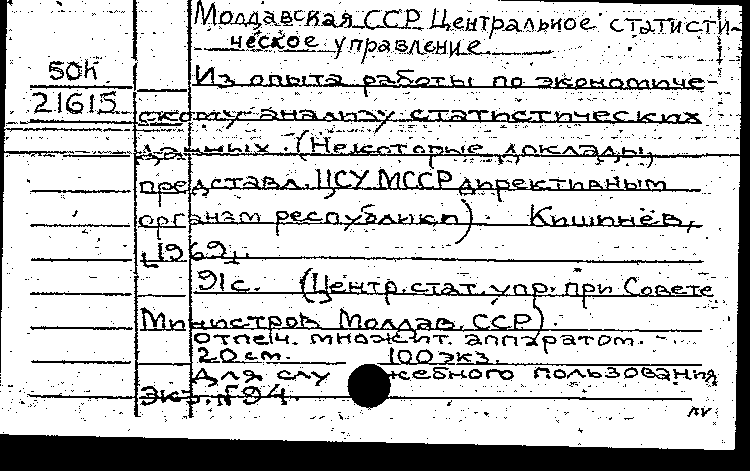 Молдавская ССР Центральное статисти-
ческое управление
50h
21615
Из опыта работы по экономиче-
скому анализу статистических
данных. (Некоторые доклады,
представл. ЦСУ МССР директивным
органам республики). Кишинёв,
1969.
91 с. (Центр. стат. упр. при Совете
Министров Молдав. ССР).
отпеч. множит. аппаратом.
20 см. 100 экз.
Для служебного пользования
Экз. № 94.